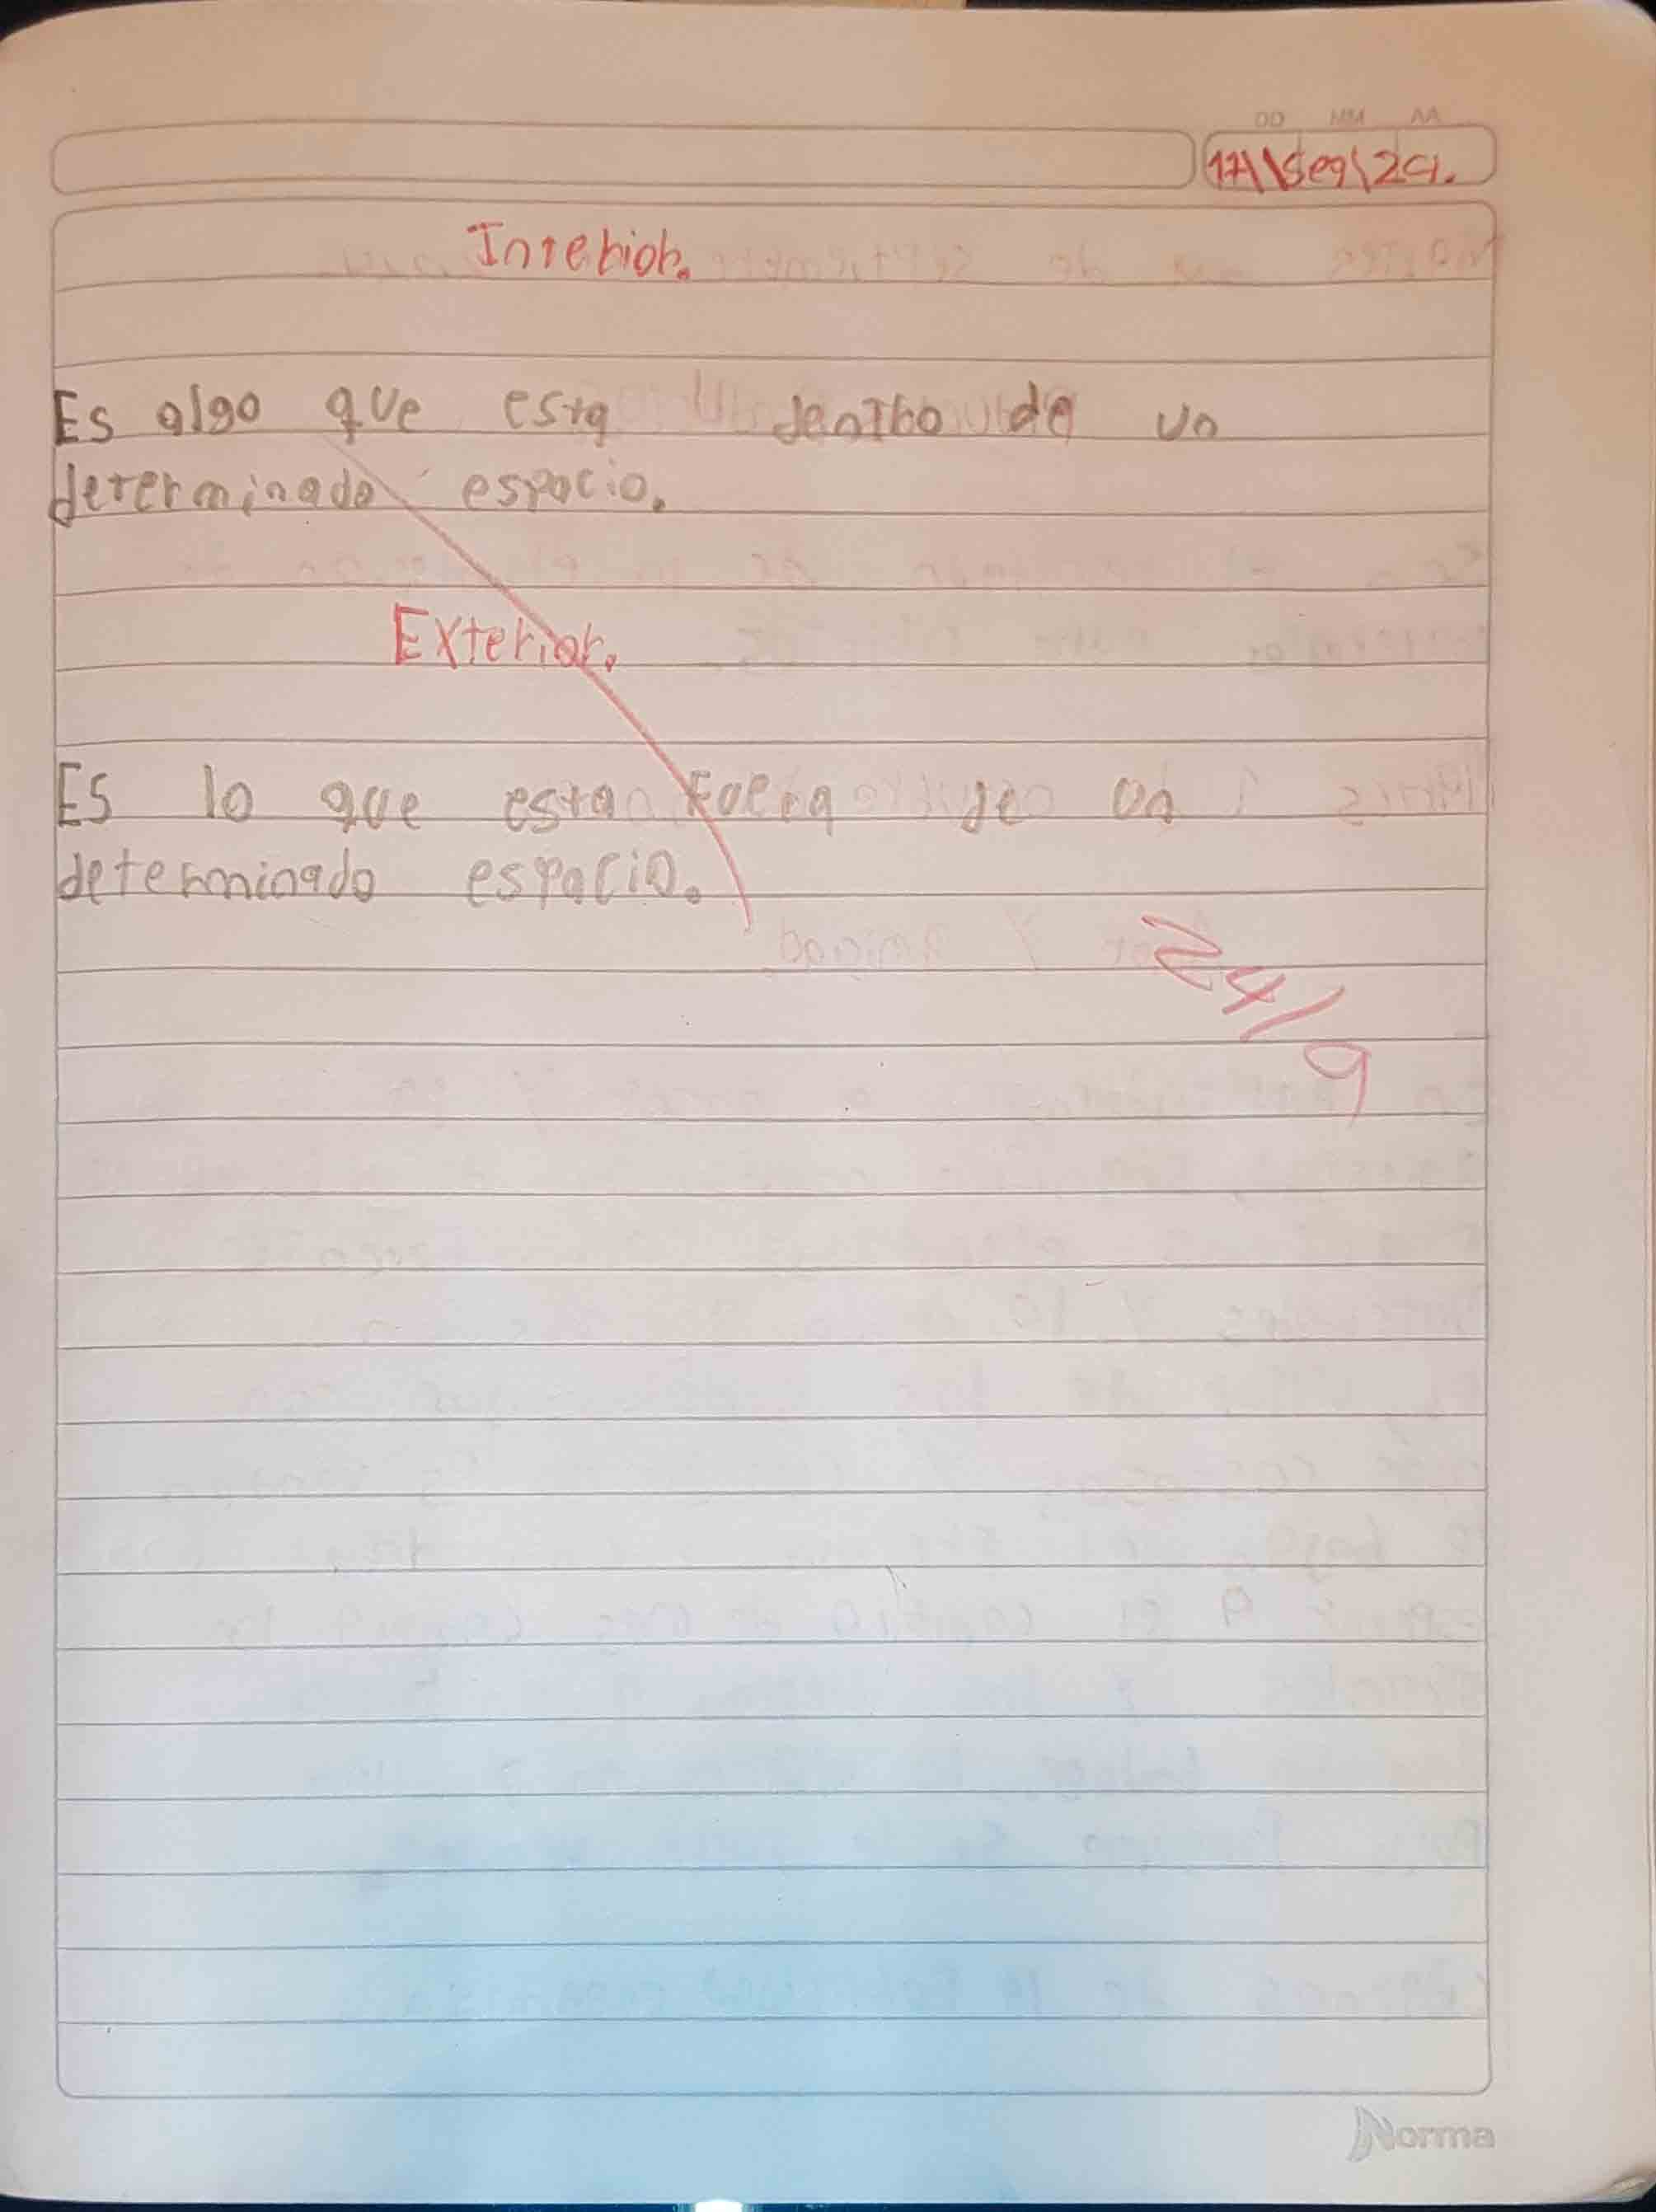 DD MM AA
17\Seq\24.
Interior.
Es algo que esta dentro de un
determinado espacio.
Exterior.
Es lo que esta fuera de un
determinado espacio.
24/9
Norma